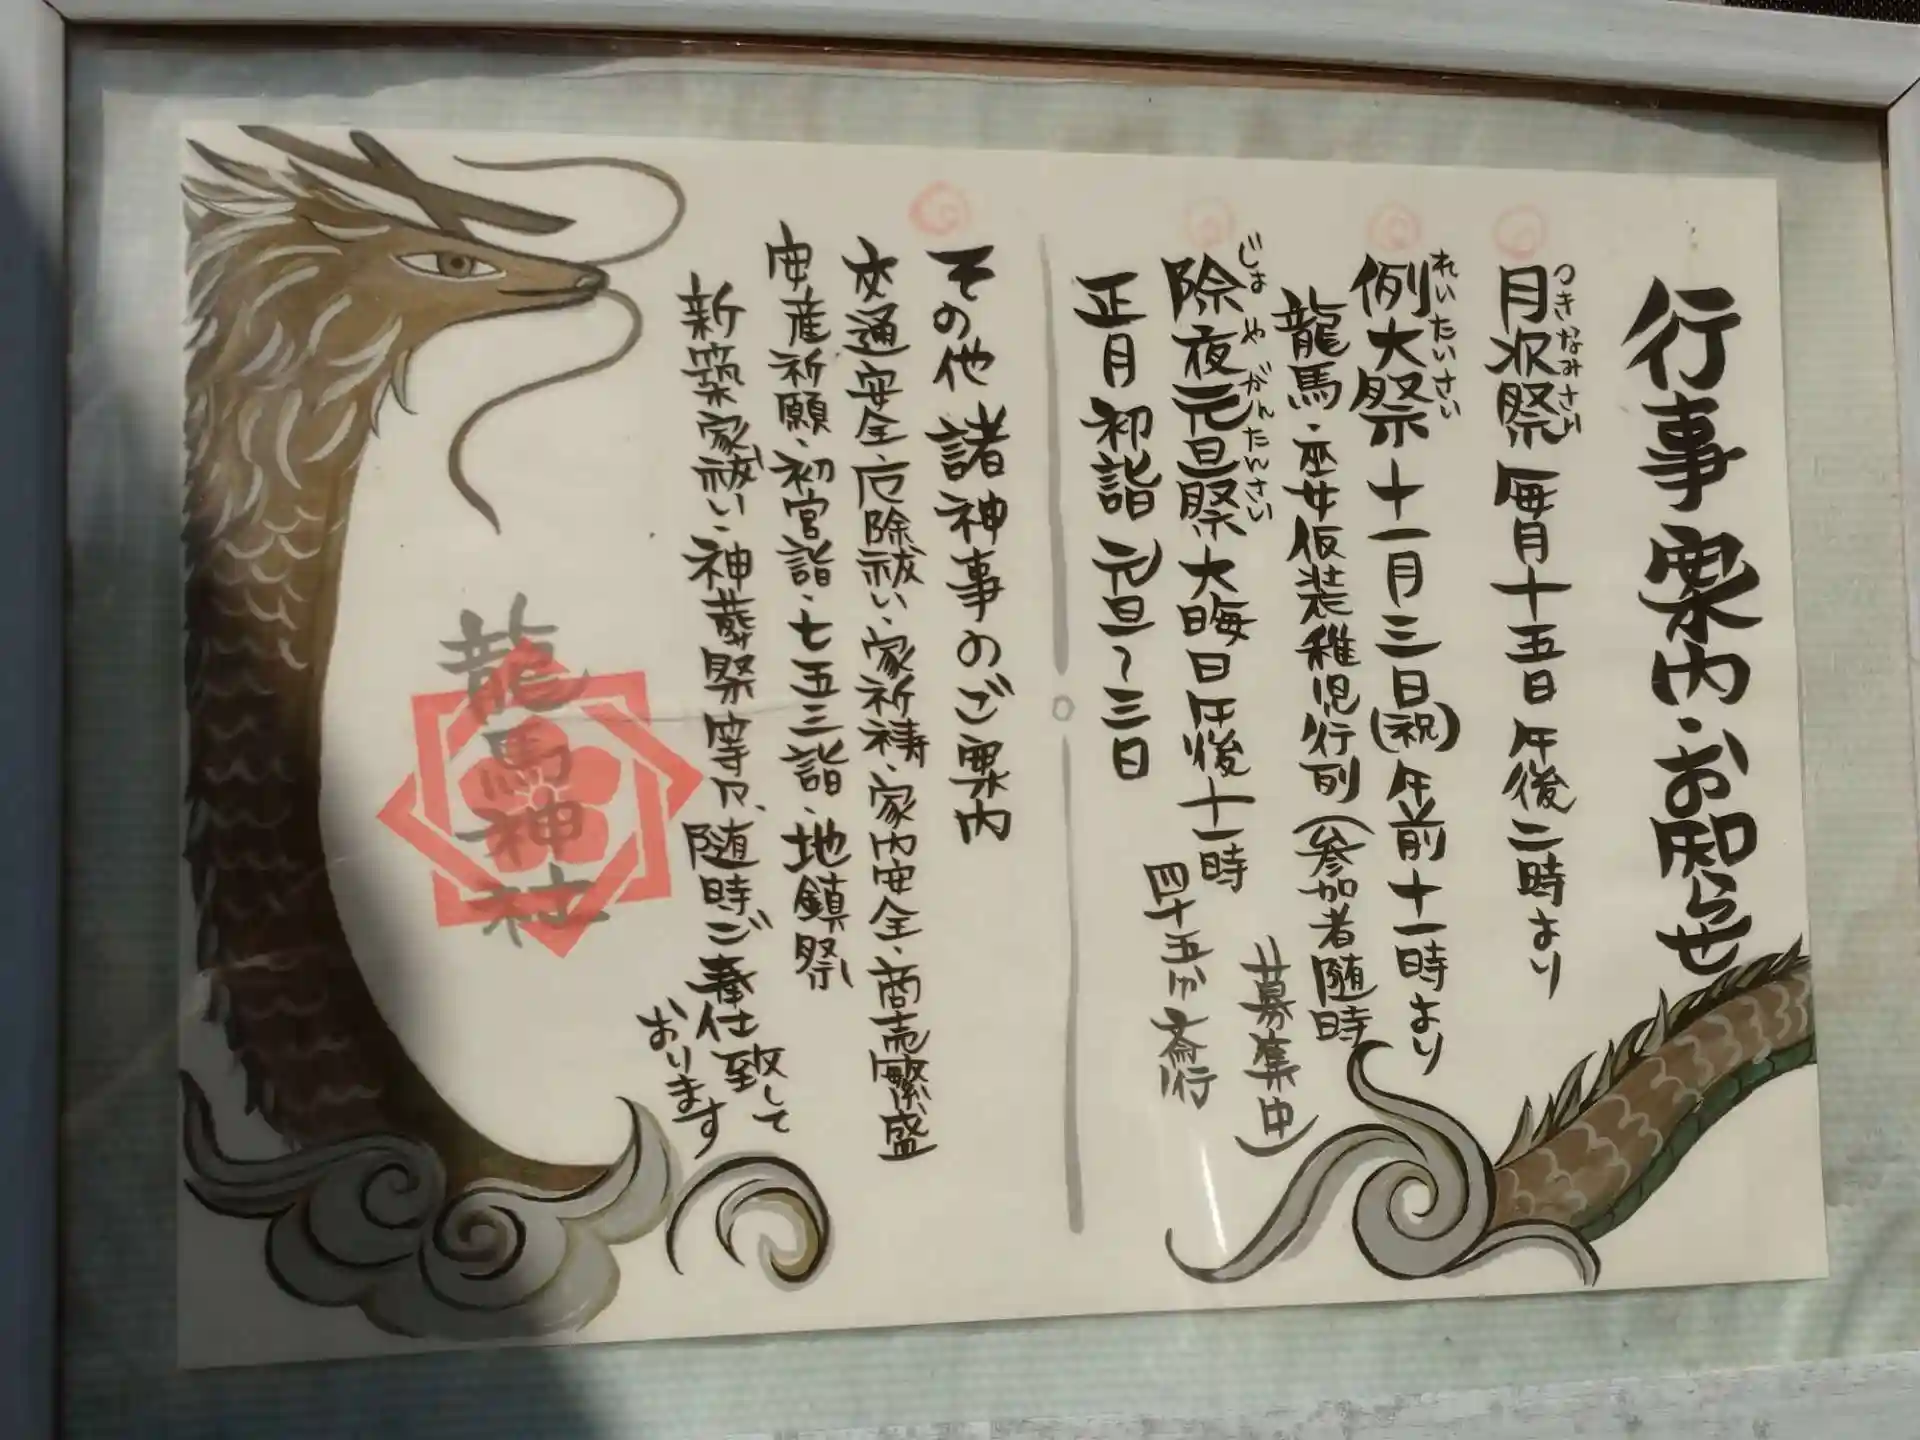 行事案内・お知らせ
月次祭 毎月十五日 午後二時より
つきなみさい
例大祭 十一月三日(祝)午前十一時より
れいたいさい
龍馬・巫女仮装稚児行列(参加者随時
募集中)
除夜元旦祭 大晦日午後十一時
じょやがんたんさい
四十五分斎行
正月初詣 元旦〜三日
その他諸神事のご案内
交通安全・厄除祓い・家祈祷・家内安全・商売繁盛
安産祈願・初宮詣・七五三詣・地鎮祭
新築家祓い・神葬祭等々、随時ご奉仕致して
おります
龍馬神社